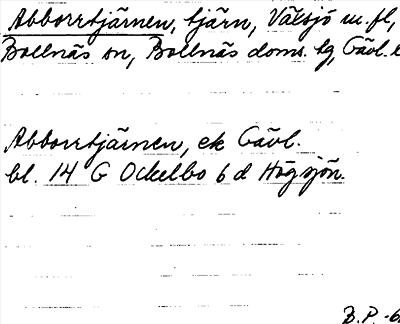 Abborrtjärnen, tjärn, Välsjö m. fl,
Bollnäs sn, Bollnäs doms. tg, Gävl. l
Abborrtjärnen, ek Gävl.
bl. 14 G Ockelbo 6 d Högsjön.
B.P. -6